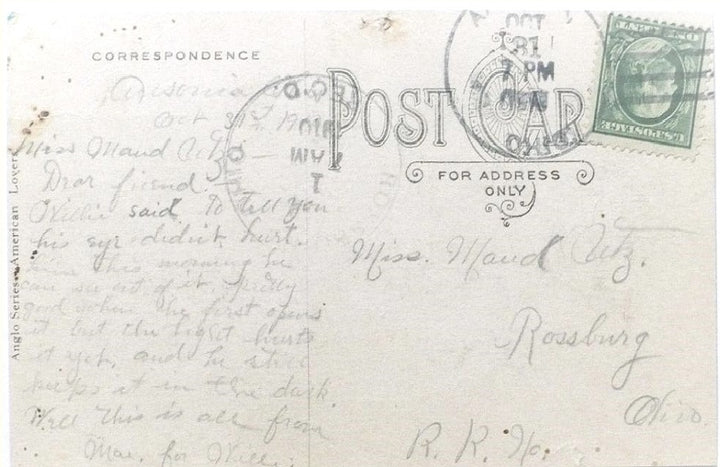 CORRESPONDENCE
Ansonia O.
Oct 31st, 19
Miss Maud Utz —
Dear friend.
Willie said to tell you
his eye didn't hurt
him this morning he
can see out of it pretty
good when he first opens
it but the light hurts
it yet, and he still
keeps it in the dark.
Well this is all from
Mae. for Will.
Anglo Series—American Lovers
POST CARD
FOR ADDRESS
ONLY
OCT
31
7 PM
OHIO
OCT
1
AM
1910
OHIO
U.S. POSTAGE
ONE CENT
Miss. Maud Utz.
Rossburg
Ohio.
R. R. No.